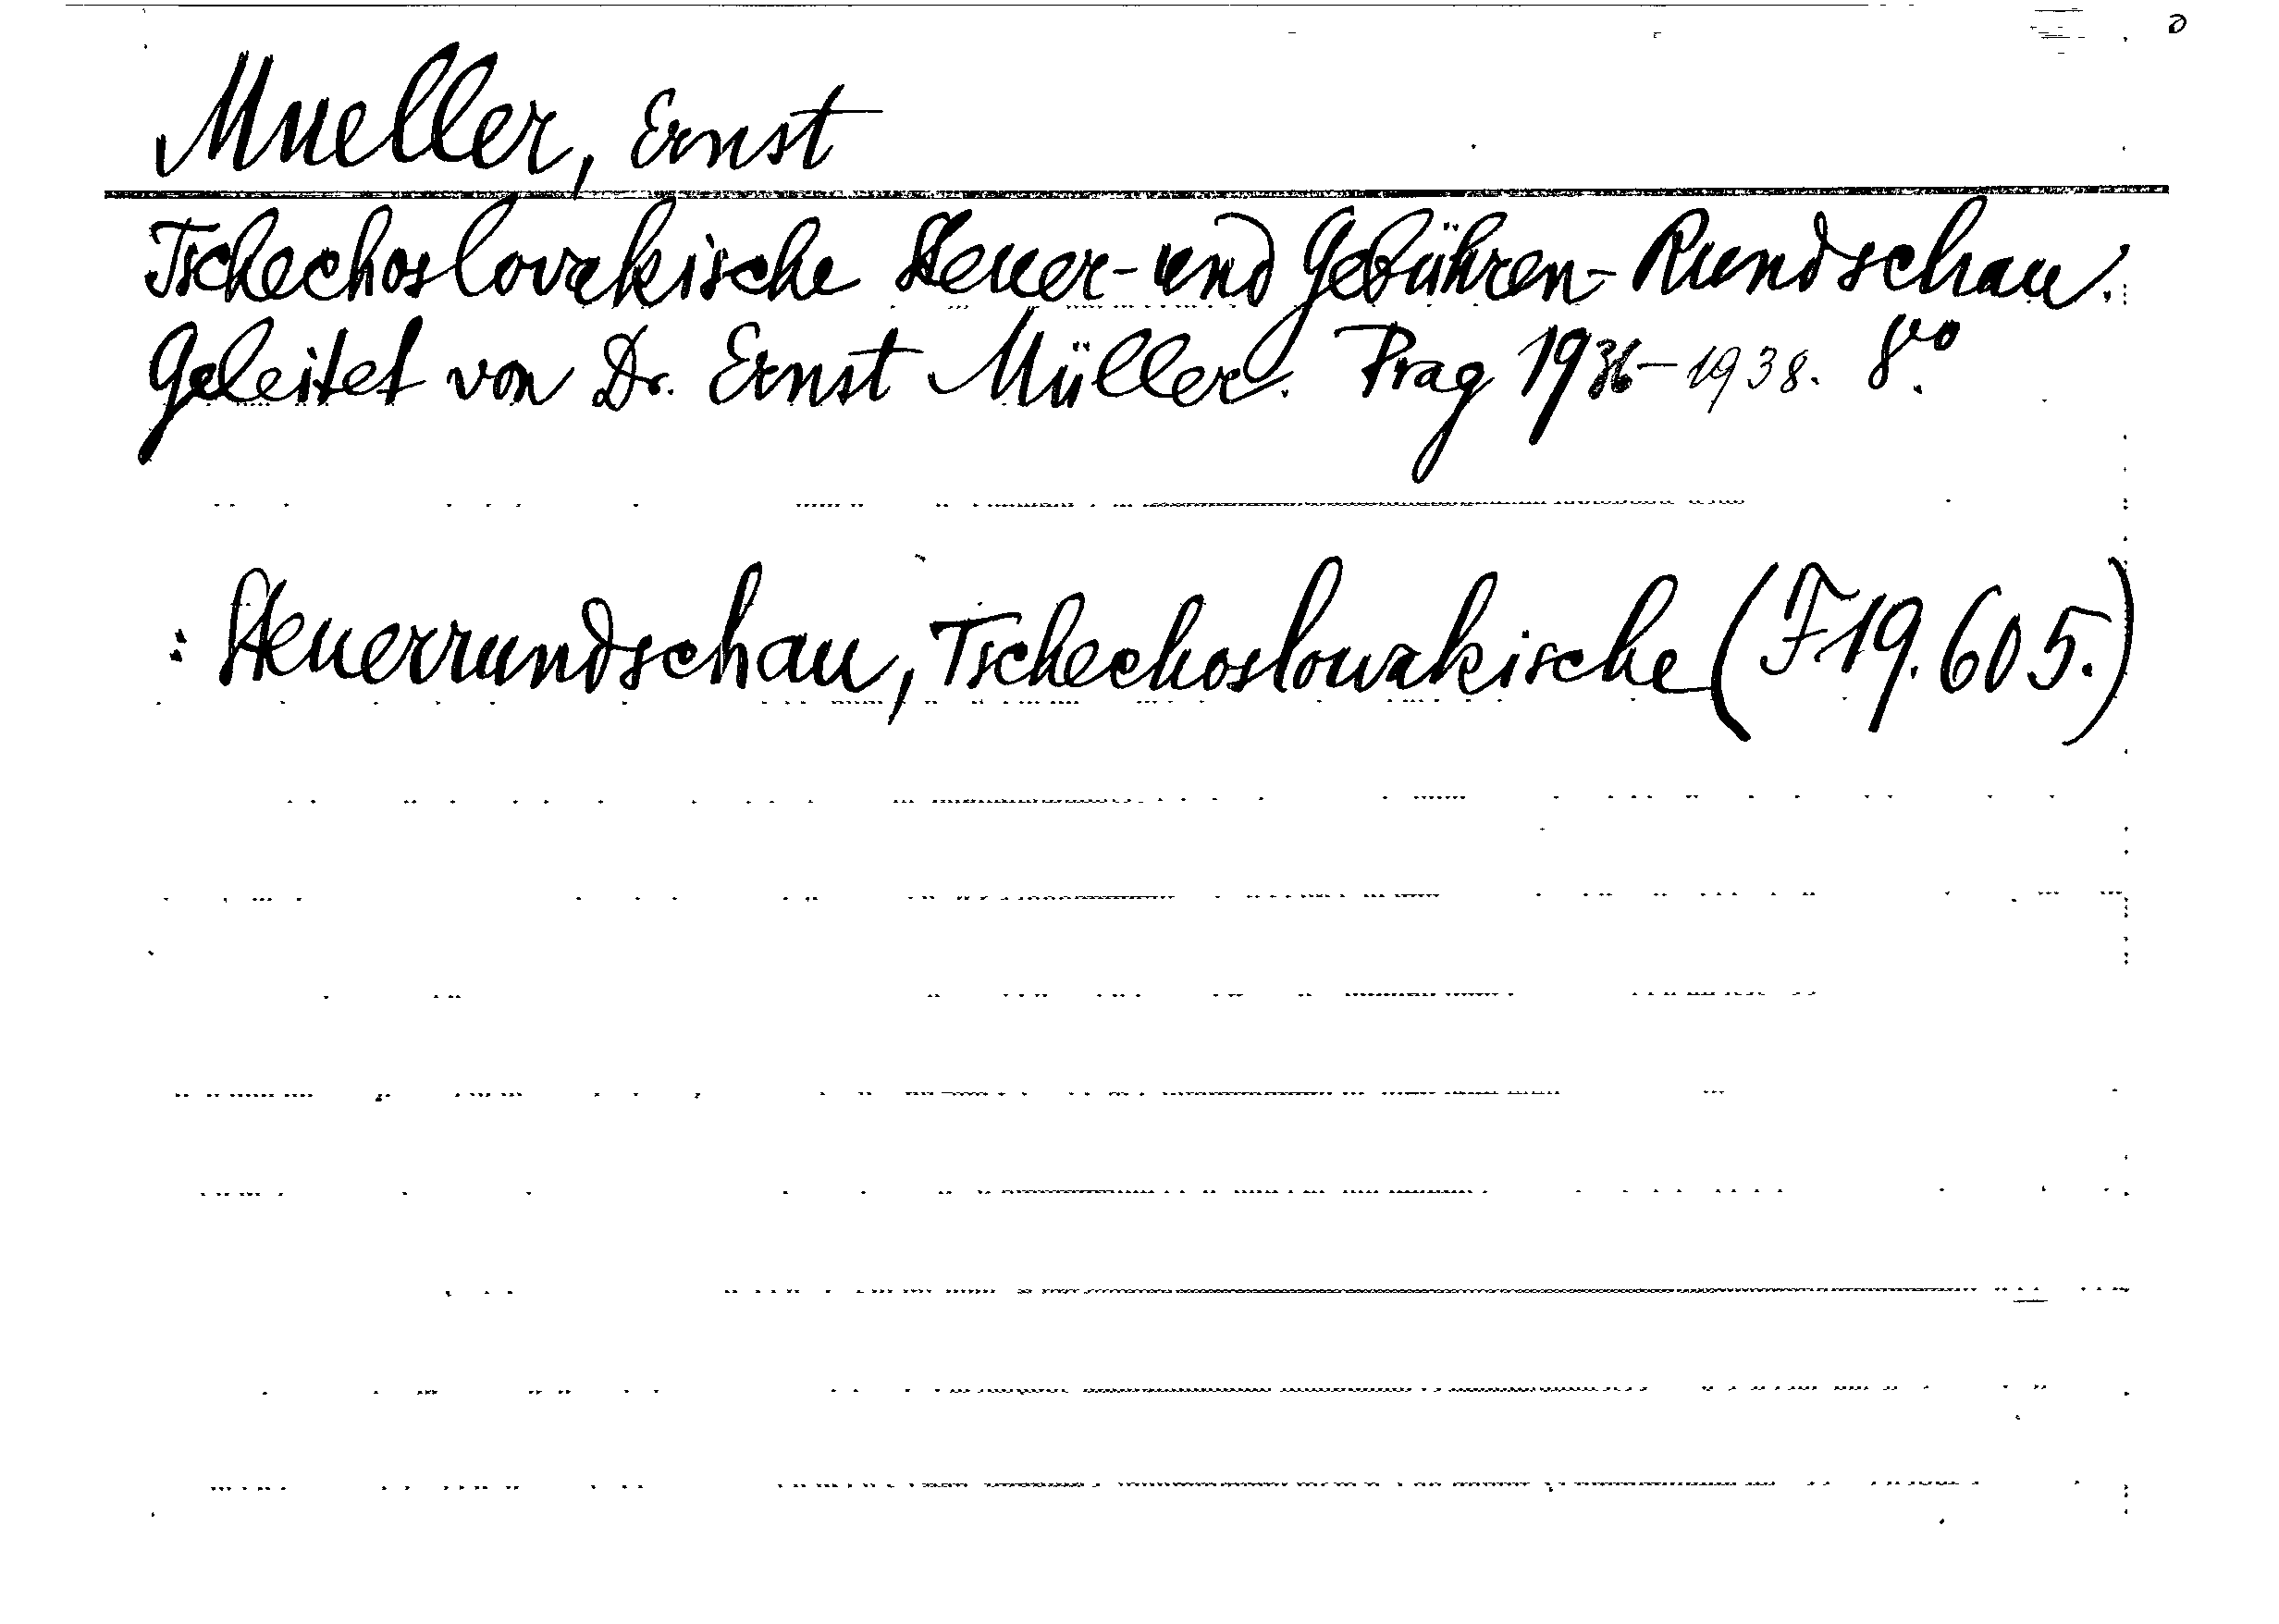 Mueller, Ernst
Tschechoslovakische Steuer- und Gebühren-Rundschau.
Geleitet von Dr. Ernst Müller. Prag 1936-1938. 8vo.
: Steuerrundschau, Tschechoslowakische (F 19.605.)